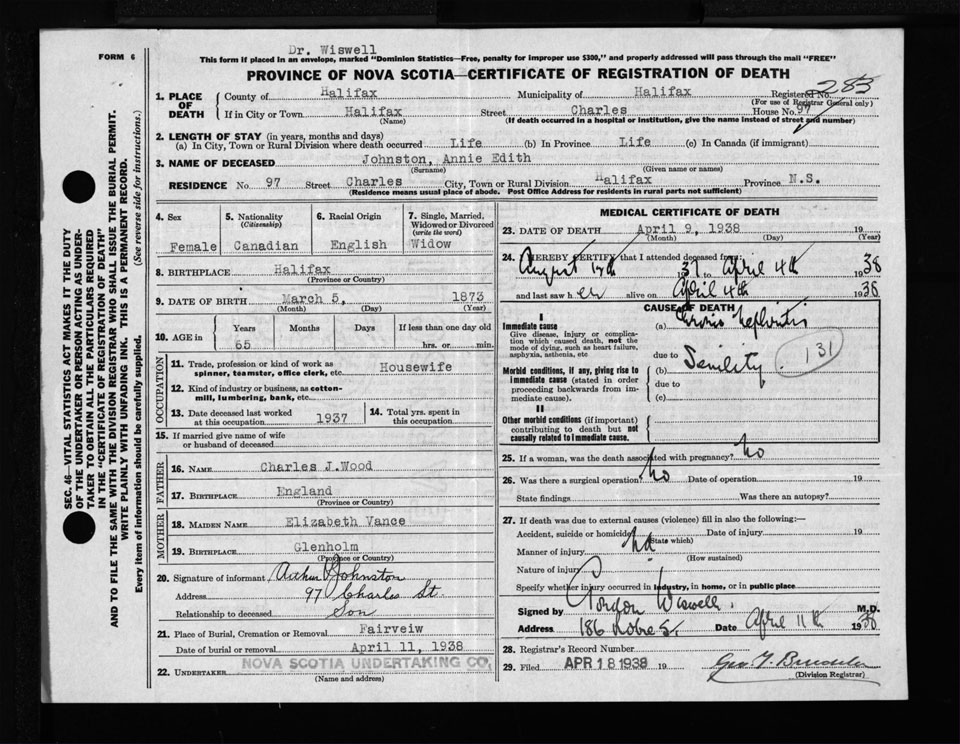 Dr. Wiswell
FORM 6
This form if placed in an envelope, marked "Dominion Statistics—Free, penalty for improper use $300," and properly addressed will pass through the mail "FREE"
PROVINCE OF NOVA SCOTIA—CERTIFICATE OF REGISTRATION OF DEATH
283
1. PLACE OF DEATH
County of Halifax Municipality of Halifax Registered No.
(For use of Registrar General only)
If in City or Town Halifax Street Charles House No. 97
(Name) (If death occurred in a hospital or institution, give the name instead of street and number)
2. LENGTH OF STAY (in years, months and days)
(a) In City, Town or Rural Division where death occurred Life (b) In Province Life (c) In Canada (if immigrant)
3. NAME OF DECEASED Johnston, Annie Edith
(Surname) (Given name or names)
RESIDENCE No. 97 Street Charles City, Town or Rural Division Halifax Province N.S.
(Residence means usual place of abode. Post Office Address for residents in rural parts not sufficient)
4. Sex Female
5. Nationality (Citizenship) Canadian
6. Racial Origin English
7. Single, Married, Widowed or Divorced (write the word) Widow
8. BIRTHPLACE Halifax
(Province or Country)
9. DATE OF BIRTH March 5, 1873
(Month) (Day) (Year)
10. AGE in
Years Months Days If less than one day old
65 hrs. or min.
OCCUPATION
11. Trade, profession or kind of work as spinner, teamster, office clerk, etc. Housewife
12. Kind of industry or business, as cotton-mill, lumbering, bank, etc.
13. Date deceased last worked at this occupation 1937
14. Total yrs. spent in this occupation
15. If married give name of wife or husband of deceased
FATHER
16. NAME Charles J.Wood
17. BIRTHPLACE England
(Province or Country)
MOTHER
18. MAIDEN NAME Elizabeth Vance
19. BIRTHPLACE Glenholm
(Province or Country)
20. Signature of informant Arthur Johnston
Address 97 Charles St.
Relationship to deceased Son
21. Place of Burial, Cremation or Removal Fairveiw
Date of burial or removal April 11, 1938
22. UNDERTAKER NOVA SCOTIA UNDERTAKING CO,
(Name and address)
MEDICAL CERTIFICATE OF DEATH
23. DATE OF DEATH April 9, 1938 19
(Month) (Day) (Year)
24. I HEREBY CERTIFY that I attended deceased from:
August 1937 to April 4th 1938
and last saw her alive on April 4th 1938
CAUSE OF DEATH
I
Immediate cause
Give disease, injury or complication which caused death, not the mode of dying, such as heart failure, asphyxia, asthenia, etc
(a) Chronic Nephritis
due to
Morbid conditions, if any, giving rise to immediate cause (stated in order proceeding backwards from immediate cause).
(b) Senility.
131
due to
(c)
II
Other morbid conditions (if important) contributing to death but not causally related to immediate cause.
25. If a woman, was the death associated with pregnancy? No
26. Was there a surgical operation? No Date of operation 19
State findings Was there an autopsy?
27. If death was due to external causes (violence) fill in also the following:—
Accident, suicide or homicide Date of injury 19
(State which)
Manner of injury
(How sustained)
Nature of injury
Specify whether injury occurred in Industry, in home, or in public place
Signed by Gordon Wiswell. M.D.
Address 186 Robie St. Date April 11th 1938
28. Registrar's Record Number
29. Filed APR 18 1938 19
(Division Registrar)
SEC. 46—VITAL STATISTICS ACT MAKES IT THE DUTY
OF THE UNDERTAKER OR PERSON ACTING AS UNDER-
TAKER TO OBTAIN ALL THE PARTICULARS REQUIRED
IN THE "CERTIFICATE OF REGISTRATION OF DEATH"
AND TO FILE THE SAME WITH THE DIVISION REGISTRAR WHO SHALL ISSUE THE BURIAL PERMIT.
WRITE PLAINLY WITH UNFADING INK. THIS IS A PERMANENT RECORD.
Every item of information should be carefully supplied. (See reverse side for instructions.)